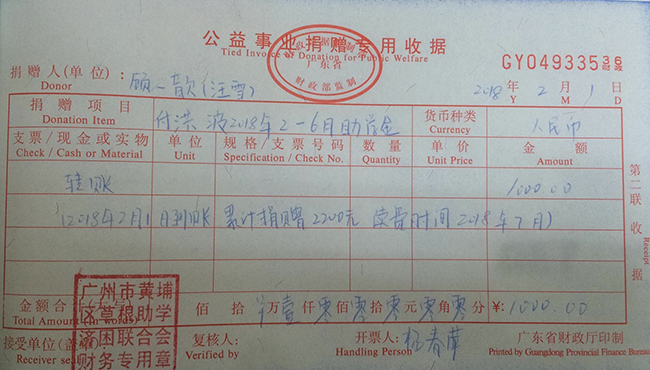 公益事业捐赠专用收据
Tied Invoice of Donation for Public Welfare
广东省
财政部监制
GY04933536
捐赠人(单位): 顾一歆(汪雪)
Donor
2018年2月1日
Y M D
捐赠项目 付洪波2018年2-6月助学金 货币种类 人民币
Donation Item Currency
支票/现金或实物 单位 规格/支票号码 数量 单价 金额
Check / Cash or Material Unit Specification / Check No. Quantity Unit Price Amount
转账 1000.00
(2018年2月1日到账 累计捐赠2200元 续费时间2018年7月)
第二联 收据
Receipt
金额合计
佰拾万壹仟零佰零拾零元零角零分 ¥:1000.00
Total Amount (In words)
接受单位(盖章) 复核人: 开票人: 杨春萍 广东省财政厅印制
Receiver Verified by Handling Person Printed by Guangdong Provincial Finance Bureau
广州市黄埔
区草根助学
济困联合会
财务专用章